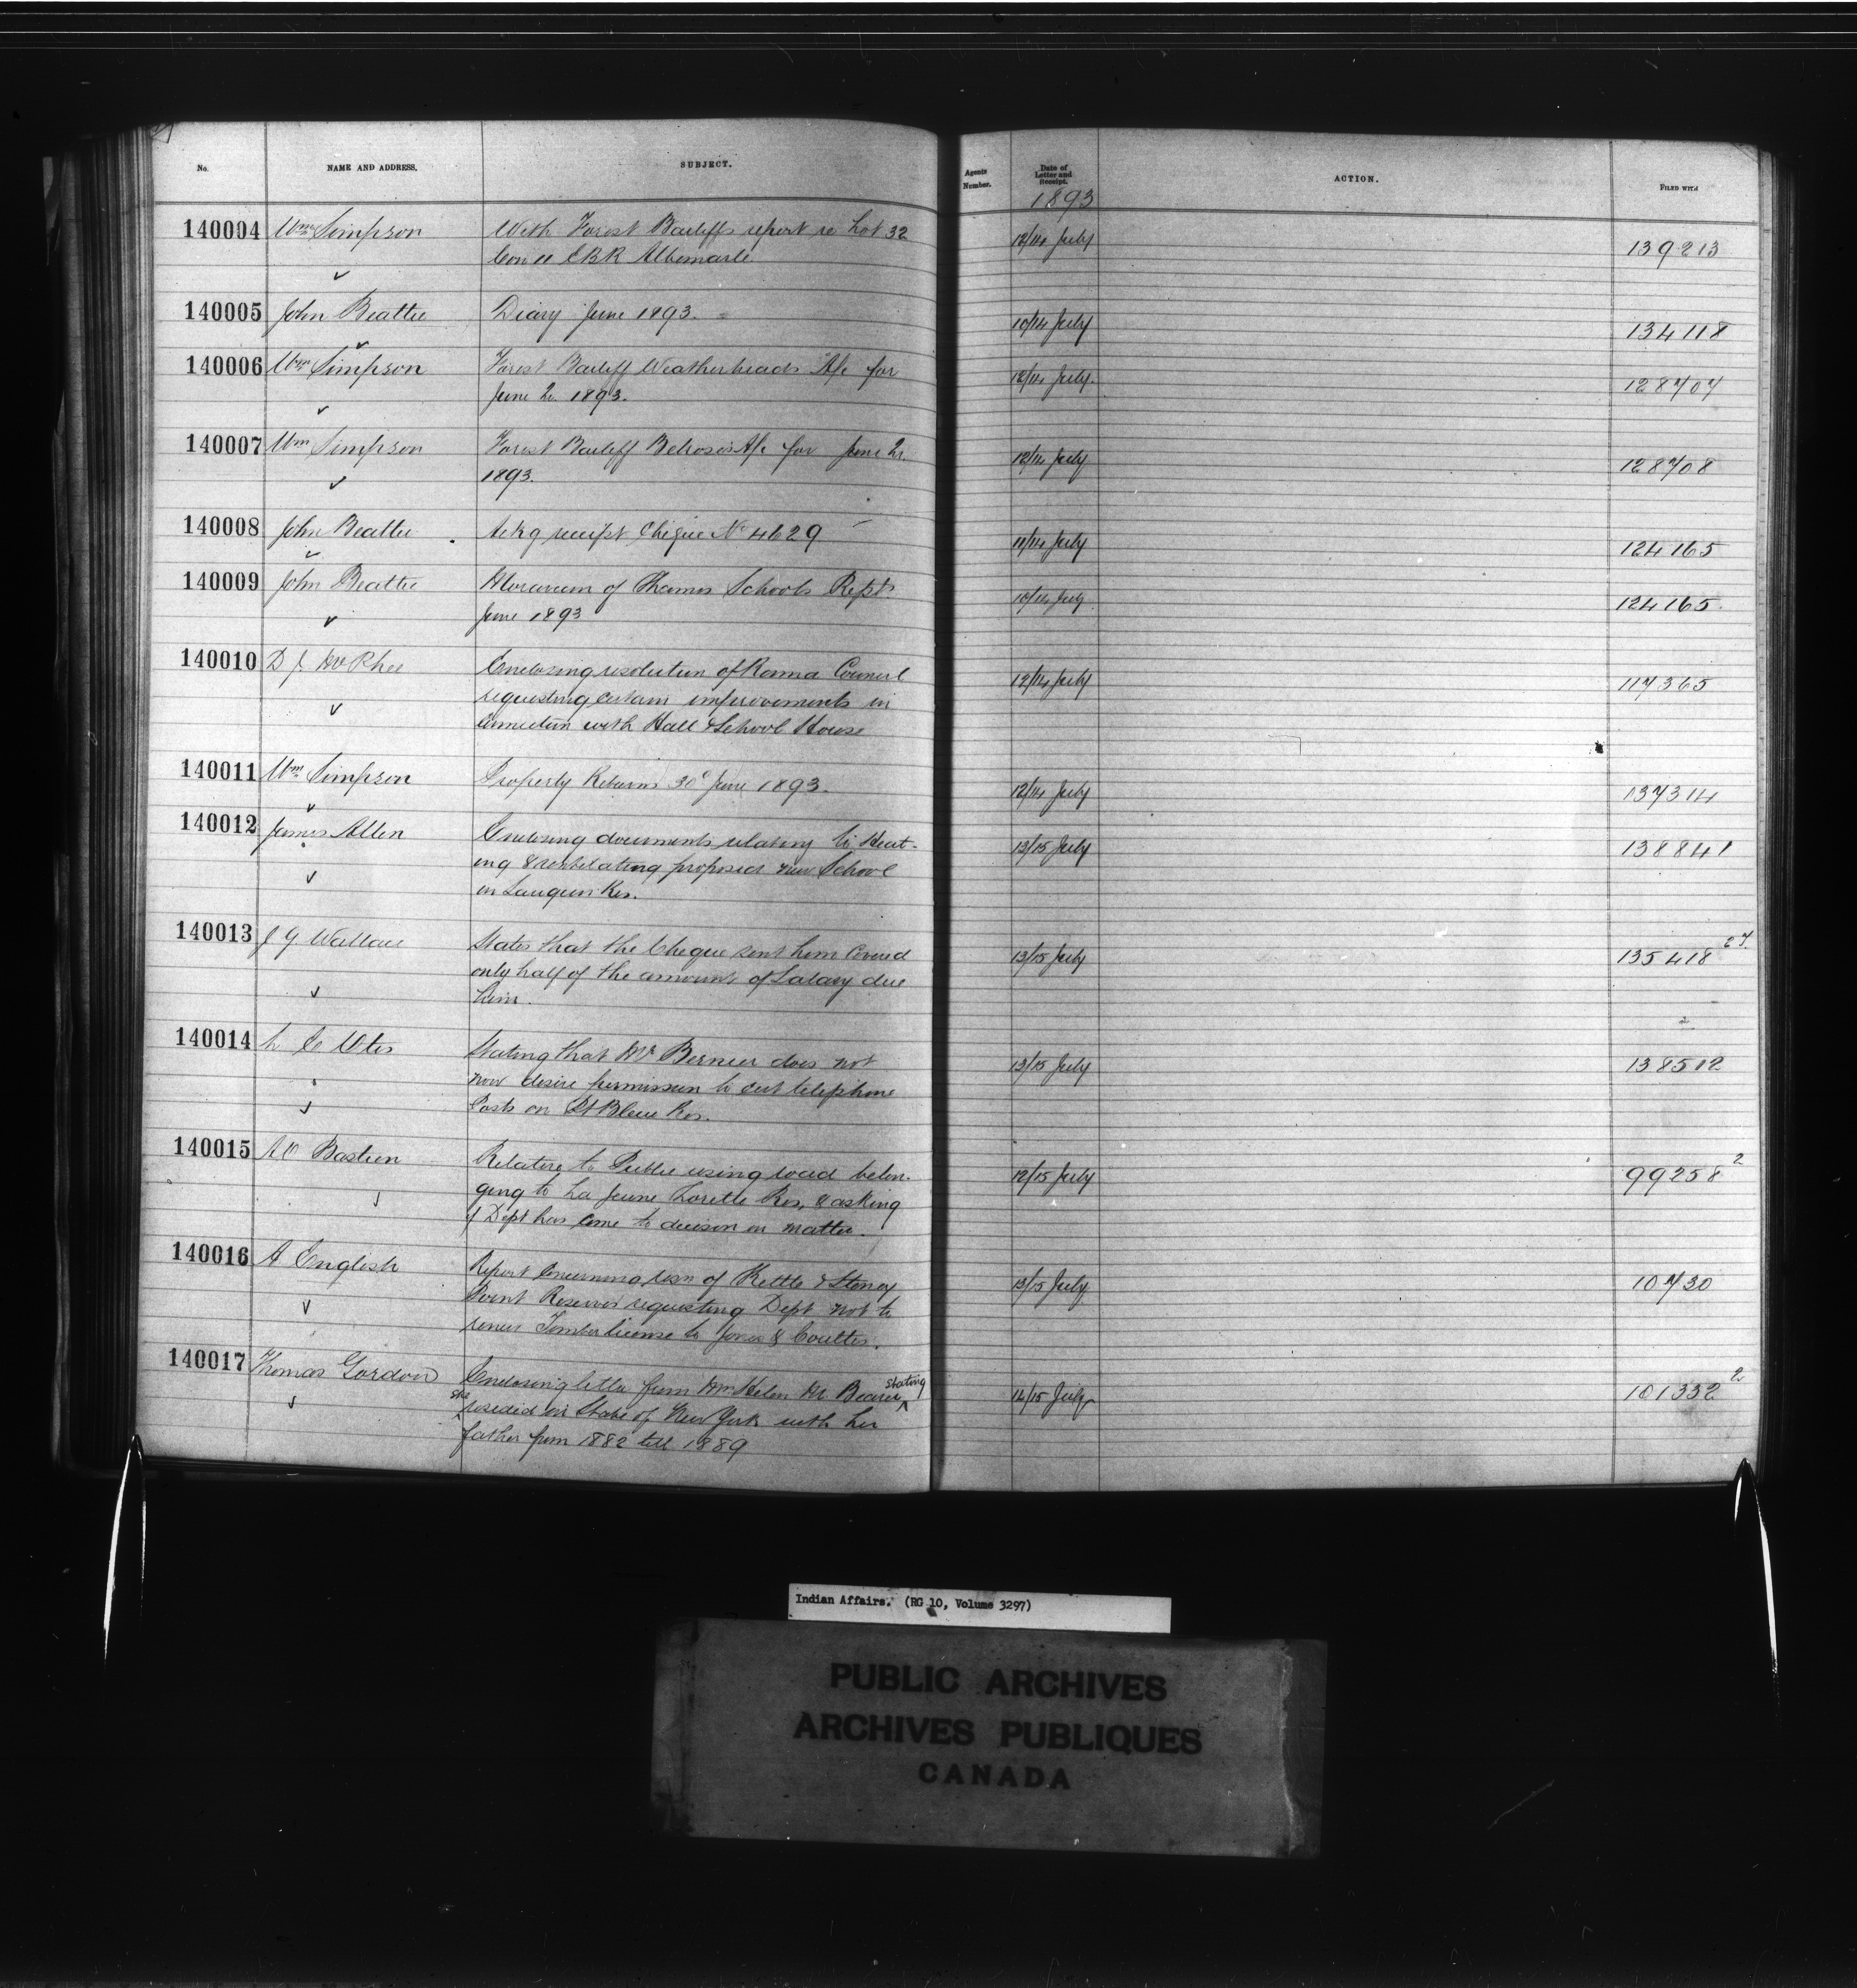 No. NAME AND ADDRESS. SUBJECT. Agents Number. Date of Letter and Receipt. ACTION. FILED WITH
1893
140004 Wm Simpson With Forest Bailiffs report re Lot 32 12/14 July 139213
Con 11 EBR Albemarle
140005 John Beattie Diary June 1893. 10/14 July 134118
140006 Wm Simpson Forest Bailiff Weatherheads A/c for 12/14 July. 128707
June Qr. 1893.
140007 Wm Simpson Forest Bailiff Belroses A/c for June Qr. 12/14 July 128708
1893.
140008 John Beattie Ackg receipt Cheque No 4629 11/14 July 124165
140009 John Beattie Moravian of Thames Schools Rept. 10/14 July 124165.
June 1893
140010 D J McPhee Enclosing resolution of Rama Council 12/14 July 117365
requesting certain improvements in
connection with Hall & School House
140011 Wm Simpson Property Returns 30th June 1893. 12/14 July 137314
140012 James Allen Enclosing documents relating to Heat- 13/15 July 138841
ing & ventilating proposed new School
on Saugeen Res.
140013 J G Wallace States that the Cheque sent him Covered 13/15 July 135418 27.
only half of the amount of Salary due
him.
140014 L E Otis Stating that Mr Bernier does not 13/15 July 138512
now desire permission to cut telephone
Posts on Pt Bleue Res.
140015 A O Bastien Relative to Public using road belon- 12/15 July 99258 2
ging to La Jeune Lorette Res, & asking
if Dept has come to decision on matter.
140016 A English Report Concerning resn of Kettle & Stoney 13/15 July 10730
Point Reserves requesting Dept not to
renew Timber license to Jones & Coultis.
140017 Thomas Gordon Enclosing letter from Mrs Helen M. Beaver stating 12/15 July 101332 2
she resided in State of New York with her
father from 1882 till 1889
Indian Affairs. (RG 10, Volume 3297)
PUBLIC ARCHIVES
ARCHIVES PUBLIQUES
CANADA